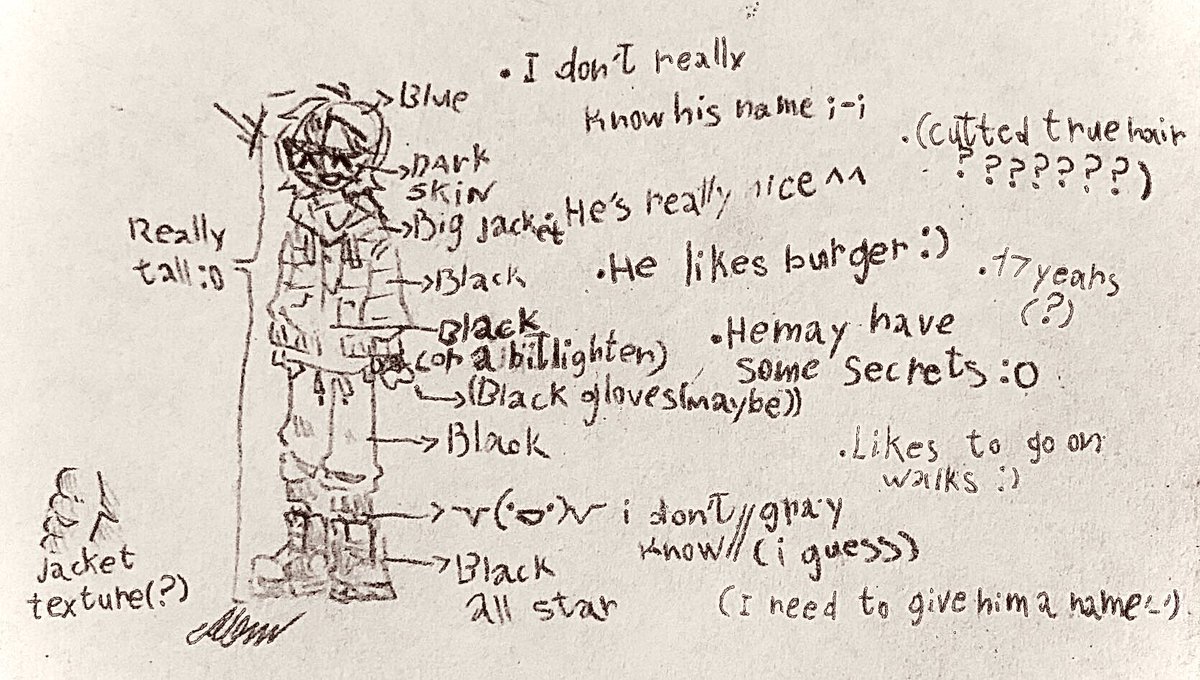 • I don't really
know his name ;-;
Blue
• (cutted true hair
? ? ? ? ? ? ?)
DARK
SKIN
• He's really nice ^^
Big jacket
Really
tall :0
• He likes burger :)
• 17 years
(?)
Black
Black
(or a bit lighter)
• He may have
some secrets :O
(Black gloves (maybe))
Black
• Likes to go on
walks :)
i don't // gray
know // (i guess)
Jacket
texture (?)
Black
all star
(I need to give him a name